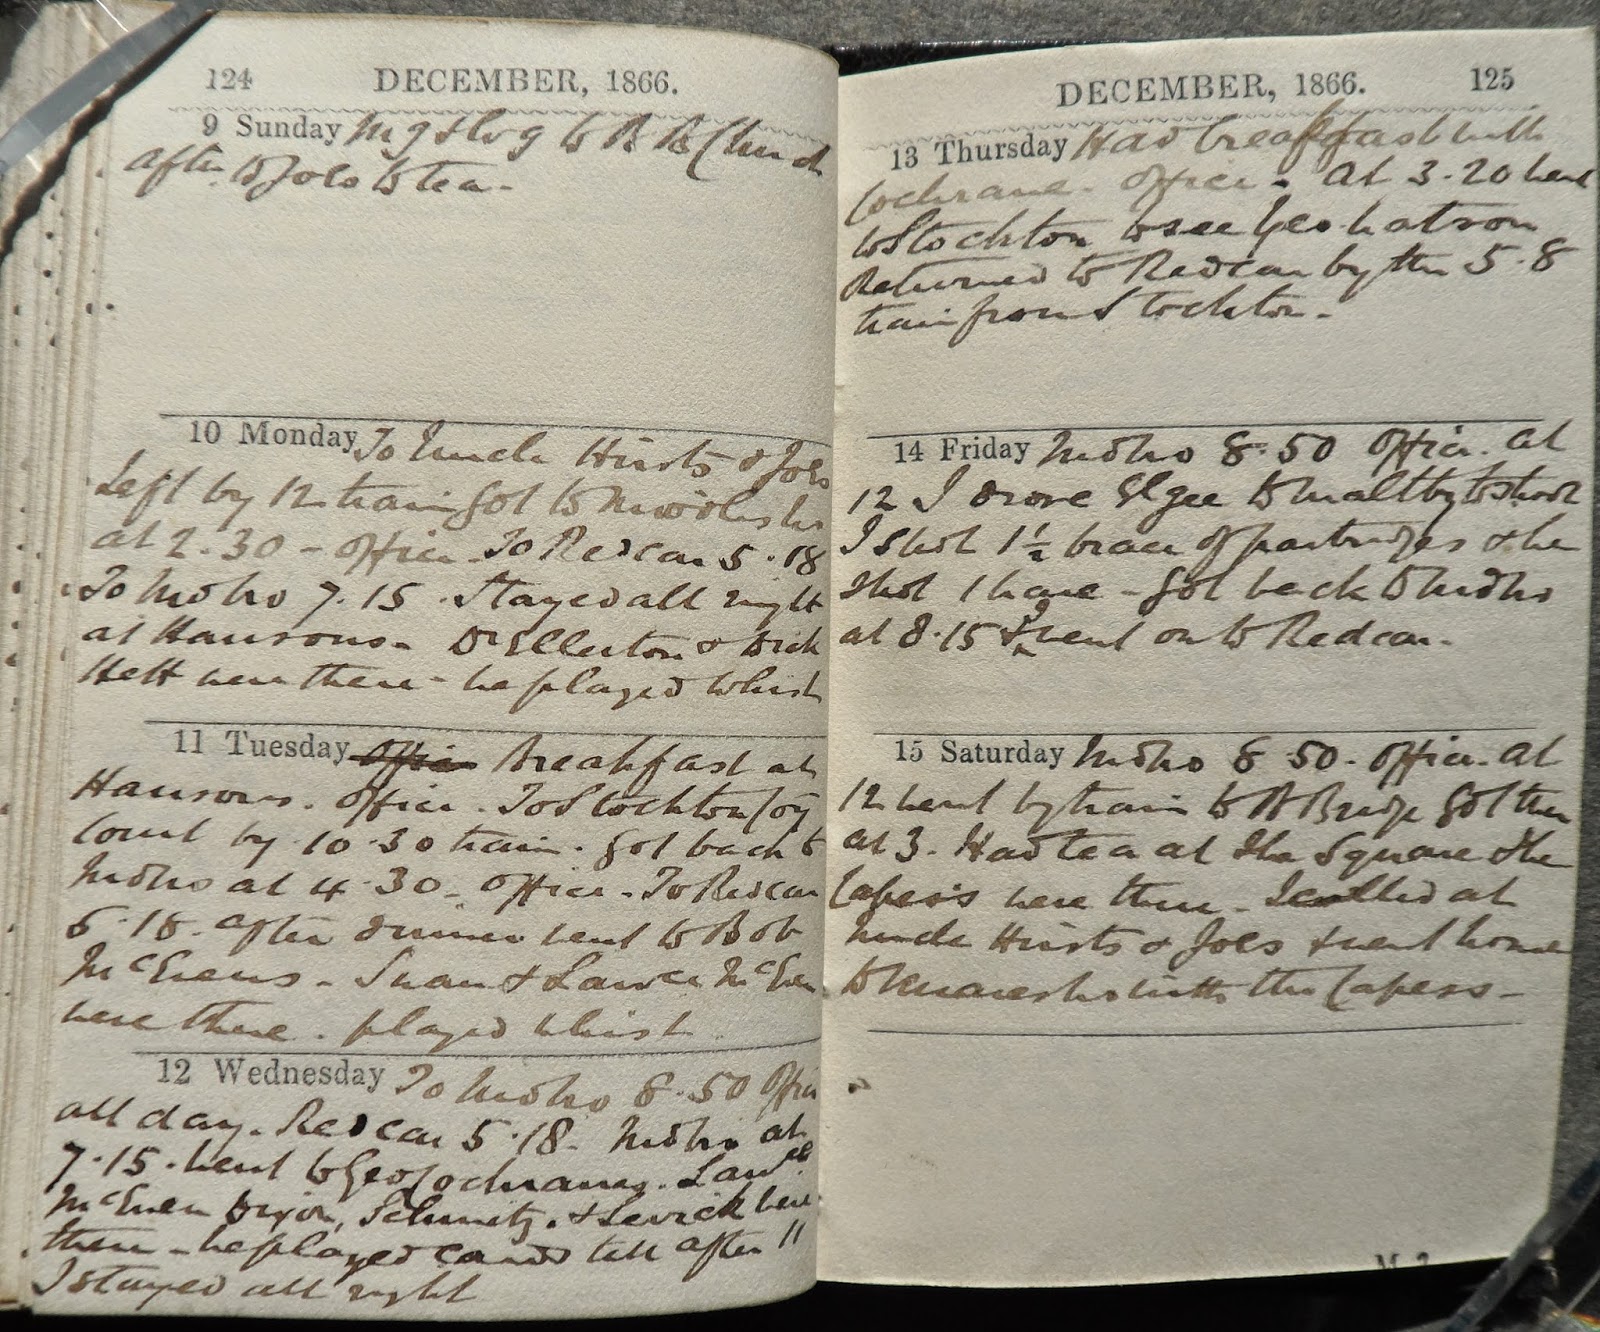 124 DECEMBER, 1866.
9 Sunday Mg & Evg to R R Church
after to Joes to tea -
10 Monday To Uncle Hirsts & Joes
Left by 12 train got to Middlesbro
at 2.30 - Office To Redcar 5.18
To Mdbro 7.15. Stayed all night
at Hansons - Dr Ellerton & Dick
Hett were there - we played whist
11 Tuesday Office Breakfast at
Hansons. Office. To Stockton Coy
Court by 10.30 train. Got back to
Mdbro at 4.30 - Office - To Redcar
5.18. after dinner went to Bob
McEwens - Susan & Lawce McEwen
were there. played whist
12 Wednesday To Mdbro 8.50 Office
all day. Redcar 5.18. Mdbro at
7.15. went to Geo Cochranes. Lawce
McEwen Dixon, Schmitz, & Levick were
there - we played cards till after 11
I stayed all night
DECEMBER, 1866. 125
13 Thursday Had breakfast with
Cochrane. Office. At 3.20 went
to Stockton to see Geo Watson
Returned to Redcar by the 5.8
train from Stockton -
14 Friday Mdbro 8.50 Office. at
12 I drove Elgee to Maltby to shoot
I shot 1½ brace of partridges & he
shot 1 hare - Got back to Mdbro
at 8.15 & went on to Redcar -
15 Saturday Mdbro 8.50. Office. at
12 went by train to B Bridge got there
at 3. Had tea at the Square & the
Capes's were there - I called at
Uncle Hirsts & Joes & went home
to Knaresbro with the Capess -